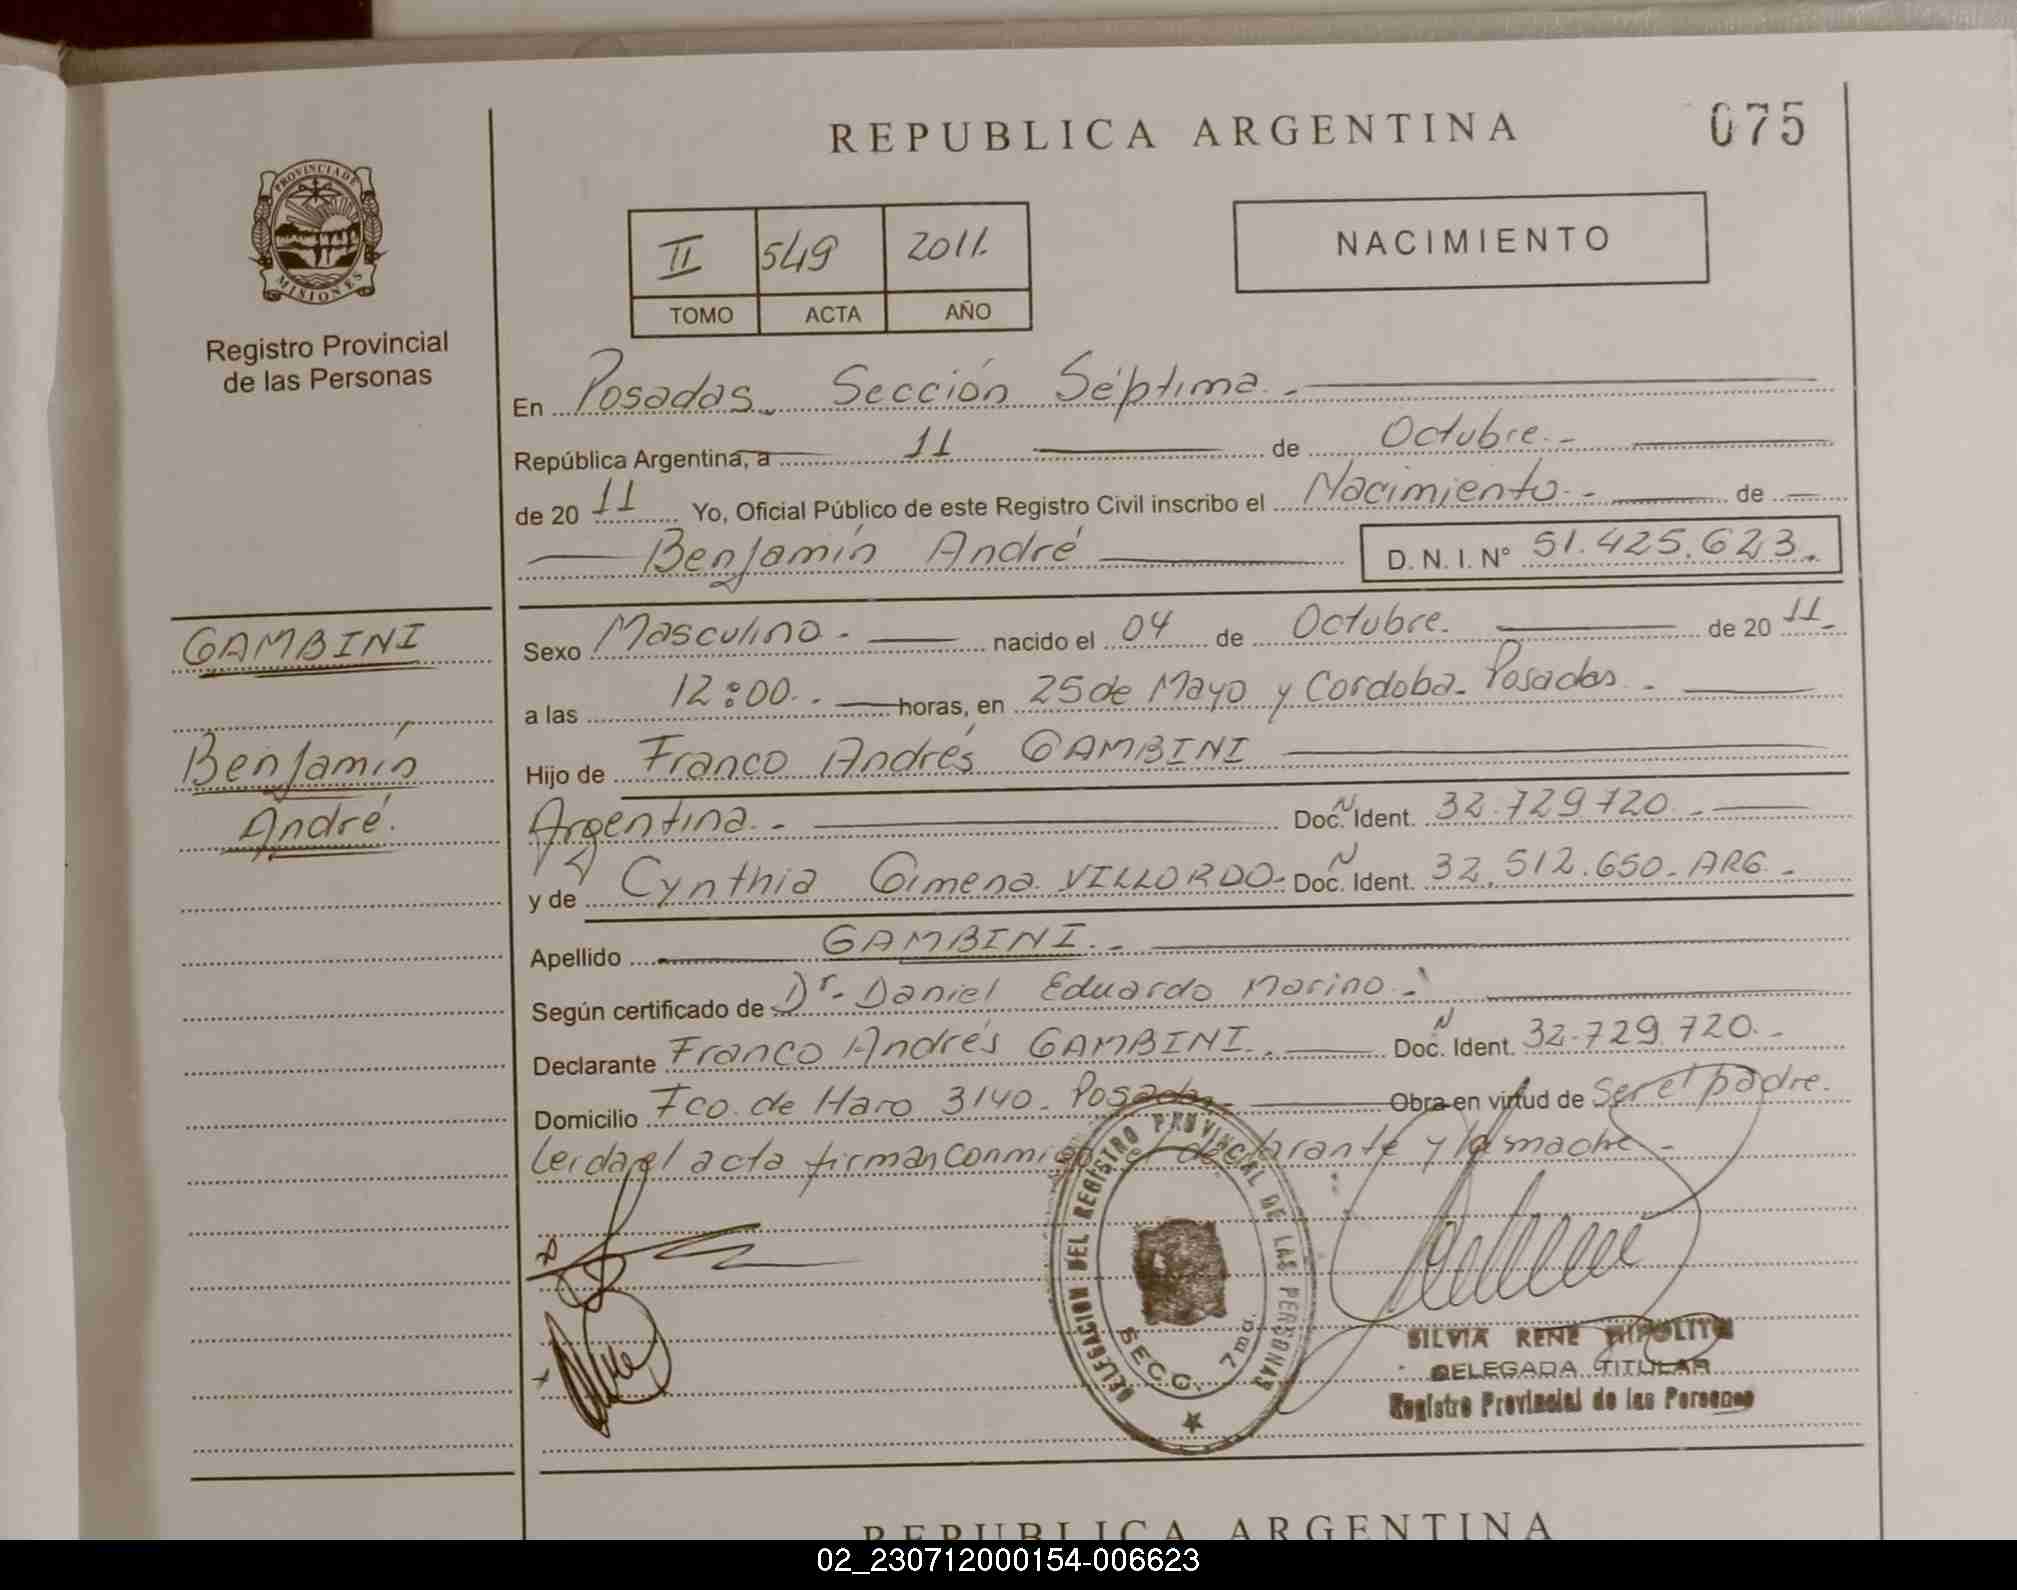 REPUBLICA ARGENTINA
075
PROVINCIA DE
MISIONES
Registro Provincial
de las Personas
II 549 2011.
TOMO ACTA AÑO
NACIMIENTO
En Posadas. Sección Séptima.-
República Argentina, a 11 de Octubre.-
de 20 11 Yo, Oficial Público de este Registro Civil inscribo el Nacimiento.- de
Benjamín André D. N. I. Nº 51.425.623.
GAMBINI
Benjamín
André.
Sexo Masculino.- nacido el 04 de Octubre. de 20 11.
a las 12:00.- horas, en 25 de Mayo y Cordoba. Posadas.-
Hijo de Franco Andrés GAMBINI
Argentina.- Doc. N Ident. 32.729.720.-
y de Cynthia Gimena VILLORDO- Doc. N Ident. 32.512.650.ARG.-
Apellido GAMBINI.-
Según certificado de Dr. Daniel Eduardo Marino.-
Declarante Franco Andrés GAMBINI. Doc. N Ident. 32.729.720.-
Domicilio Fco. de Haro 3140. Posadas Obra en virtud de Ser el padre.
Leida el acta firman conmigo el declarante y la madre.-
DELEGACION DEL REGISTRO PROVINCIAL DE LAS PERSONAS
SECC. 7ma.
SILVIA RENE HIPOLITO
DELEGADA TITULAR
Registro Provincial de las Personas
REPUBLICA ARGENTINA
02_230712000154-006623